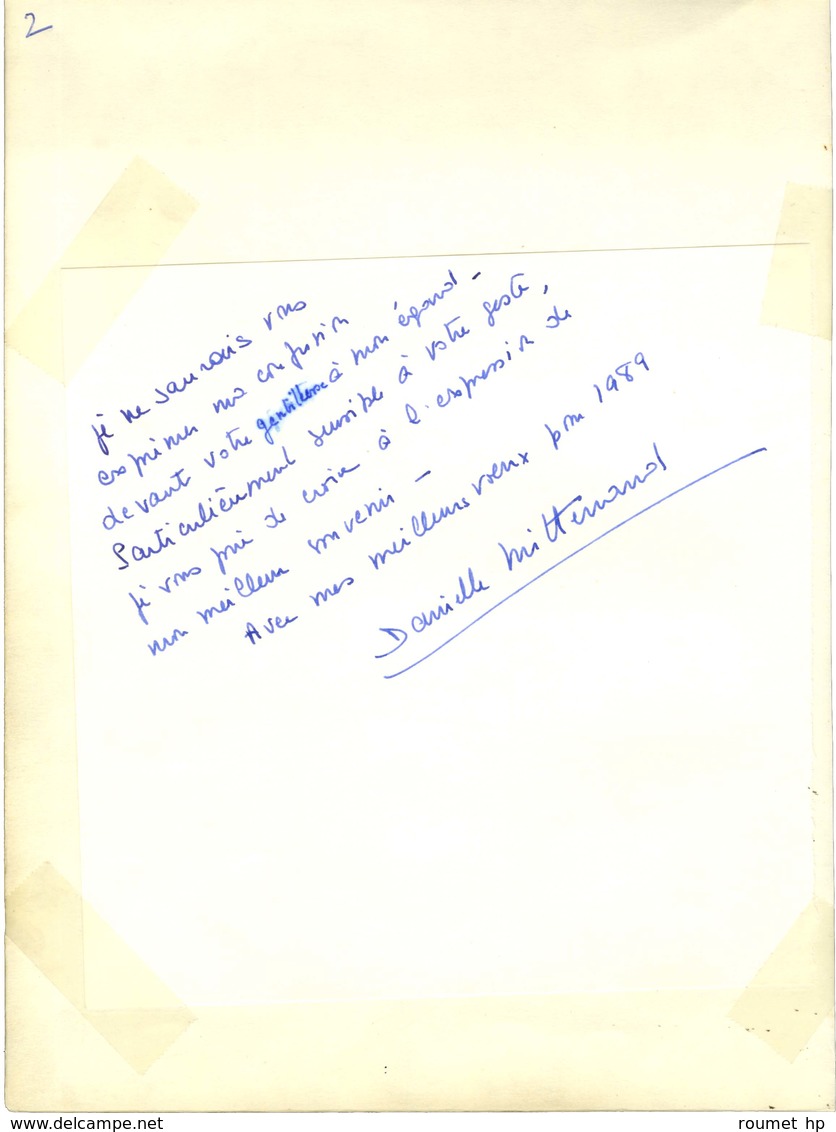 2
je ne saurais vous
exprimer ma confusion
devant votre gentillesse à mon égard -
Particulièrement sensible à votre geste,
je vous prie de croire à l'expression de
mon meilleur souvenir -
Avec mes meilleurs voeux pour 1989
Danielle Mitterrand
www.delcampe.net
roumet hp